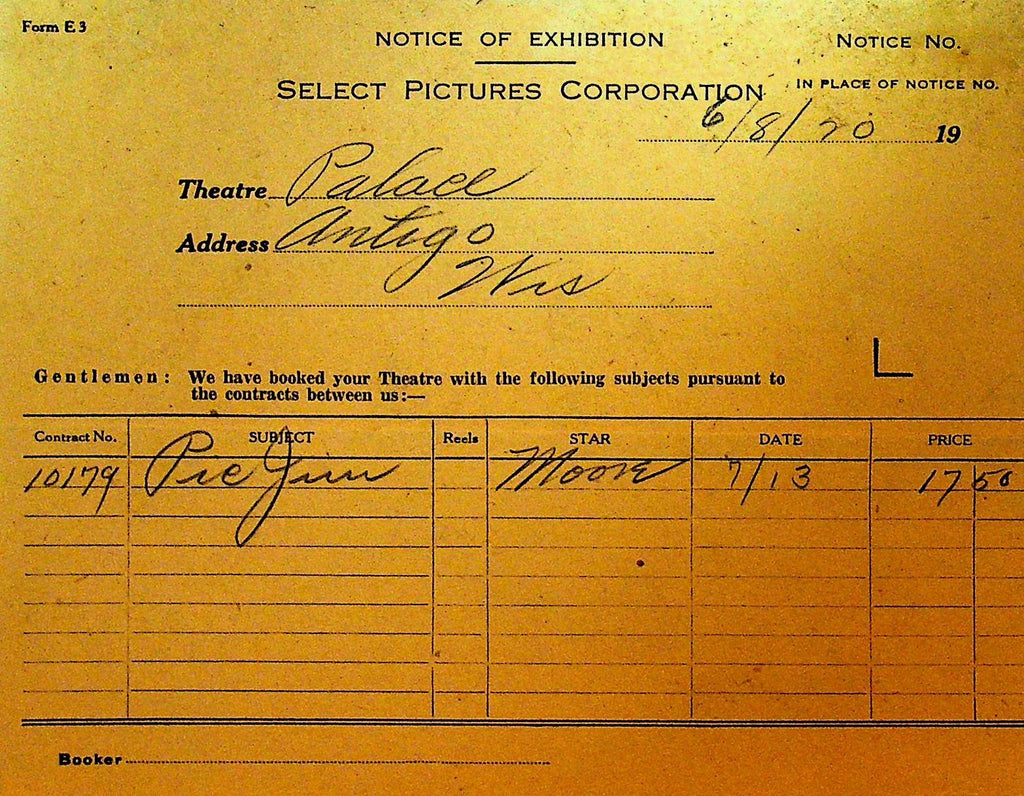 Form E 3
NOTICE OF EXHIBITION
Notice No.
SELECT PICTURES CORPORATION
IN PLACE OF NOTICE NO.
6/8/20 19
Theatre Palace
Address Antigo
Wis
Gentlemen: We have booked your Theatre with the following subjects pursuant to
the contracts between us:—
Contract No. SUBJECT Reels STAR DATE PRICE
10179 Pic Jim Moore 7/13 17 50
Booker